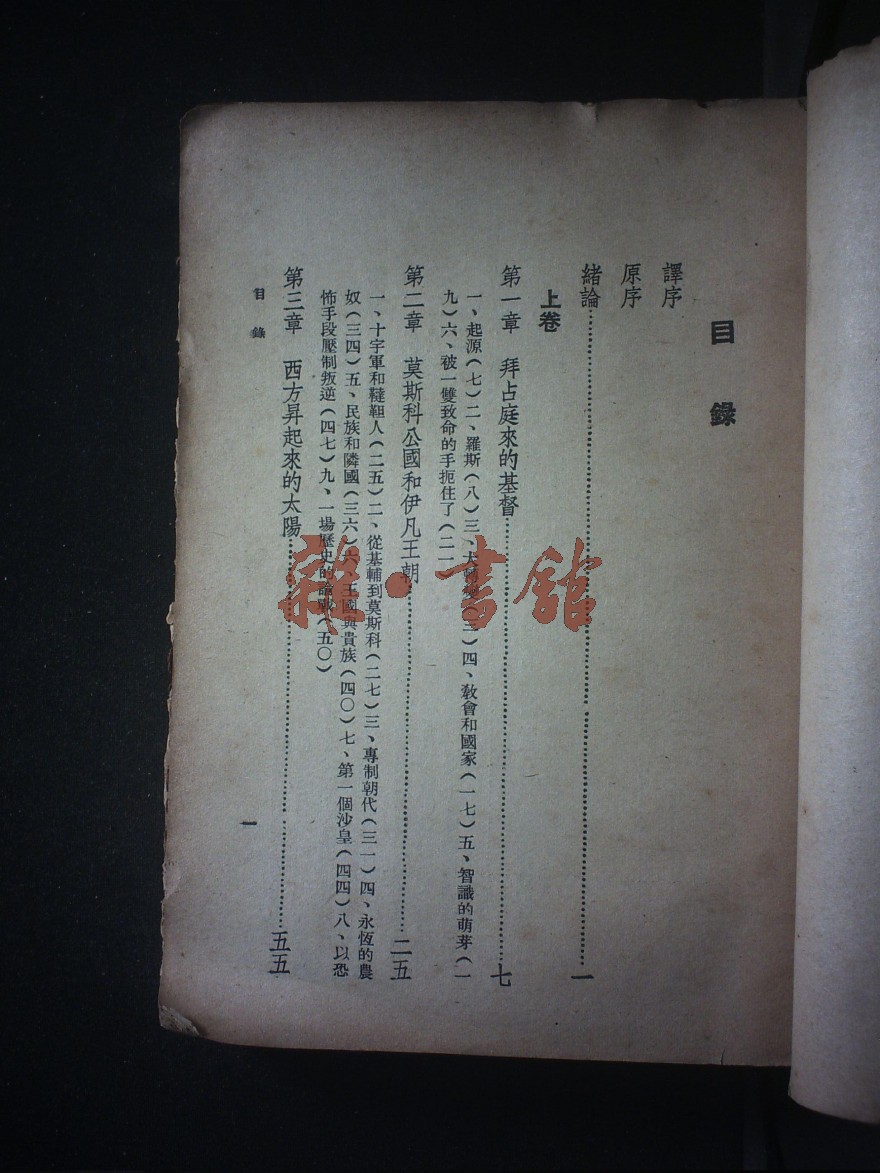 目錄
譯序
原序
緒論……一
上卷
第一章 拜占庭來的基督……七
一、起源（七）二、羅斯（八）三、大轉變（三）四、敎會和國家（一七）五、智識的萌芽（一
九）六、被一雙致命的手扼住了（二一）
第二章 莫斯科公國和伊凡王朝……二五
一、十字軍和韃靼人（二五）二、從基輔到莫斯科（二七）三、專制朝代（三一）四、永恆的農
奴（三四）五、民族和隣國（三六）六、王國與貴族（四〇）七、第一個沙皇（四四）八、以恐
怖手段壓制叛逆（四七）九、一場歷史的論戰（五〇）
第三章 西方昇起來的太陽……五五
目錄
一
雜·書館